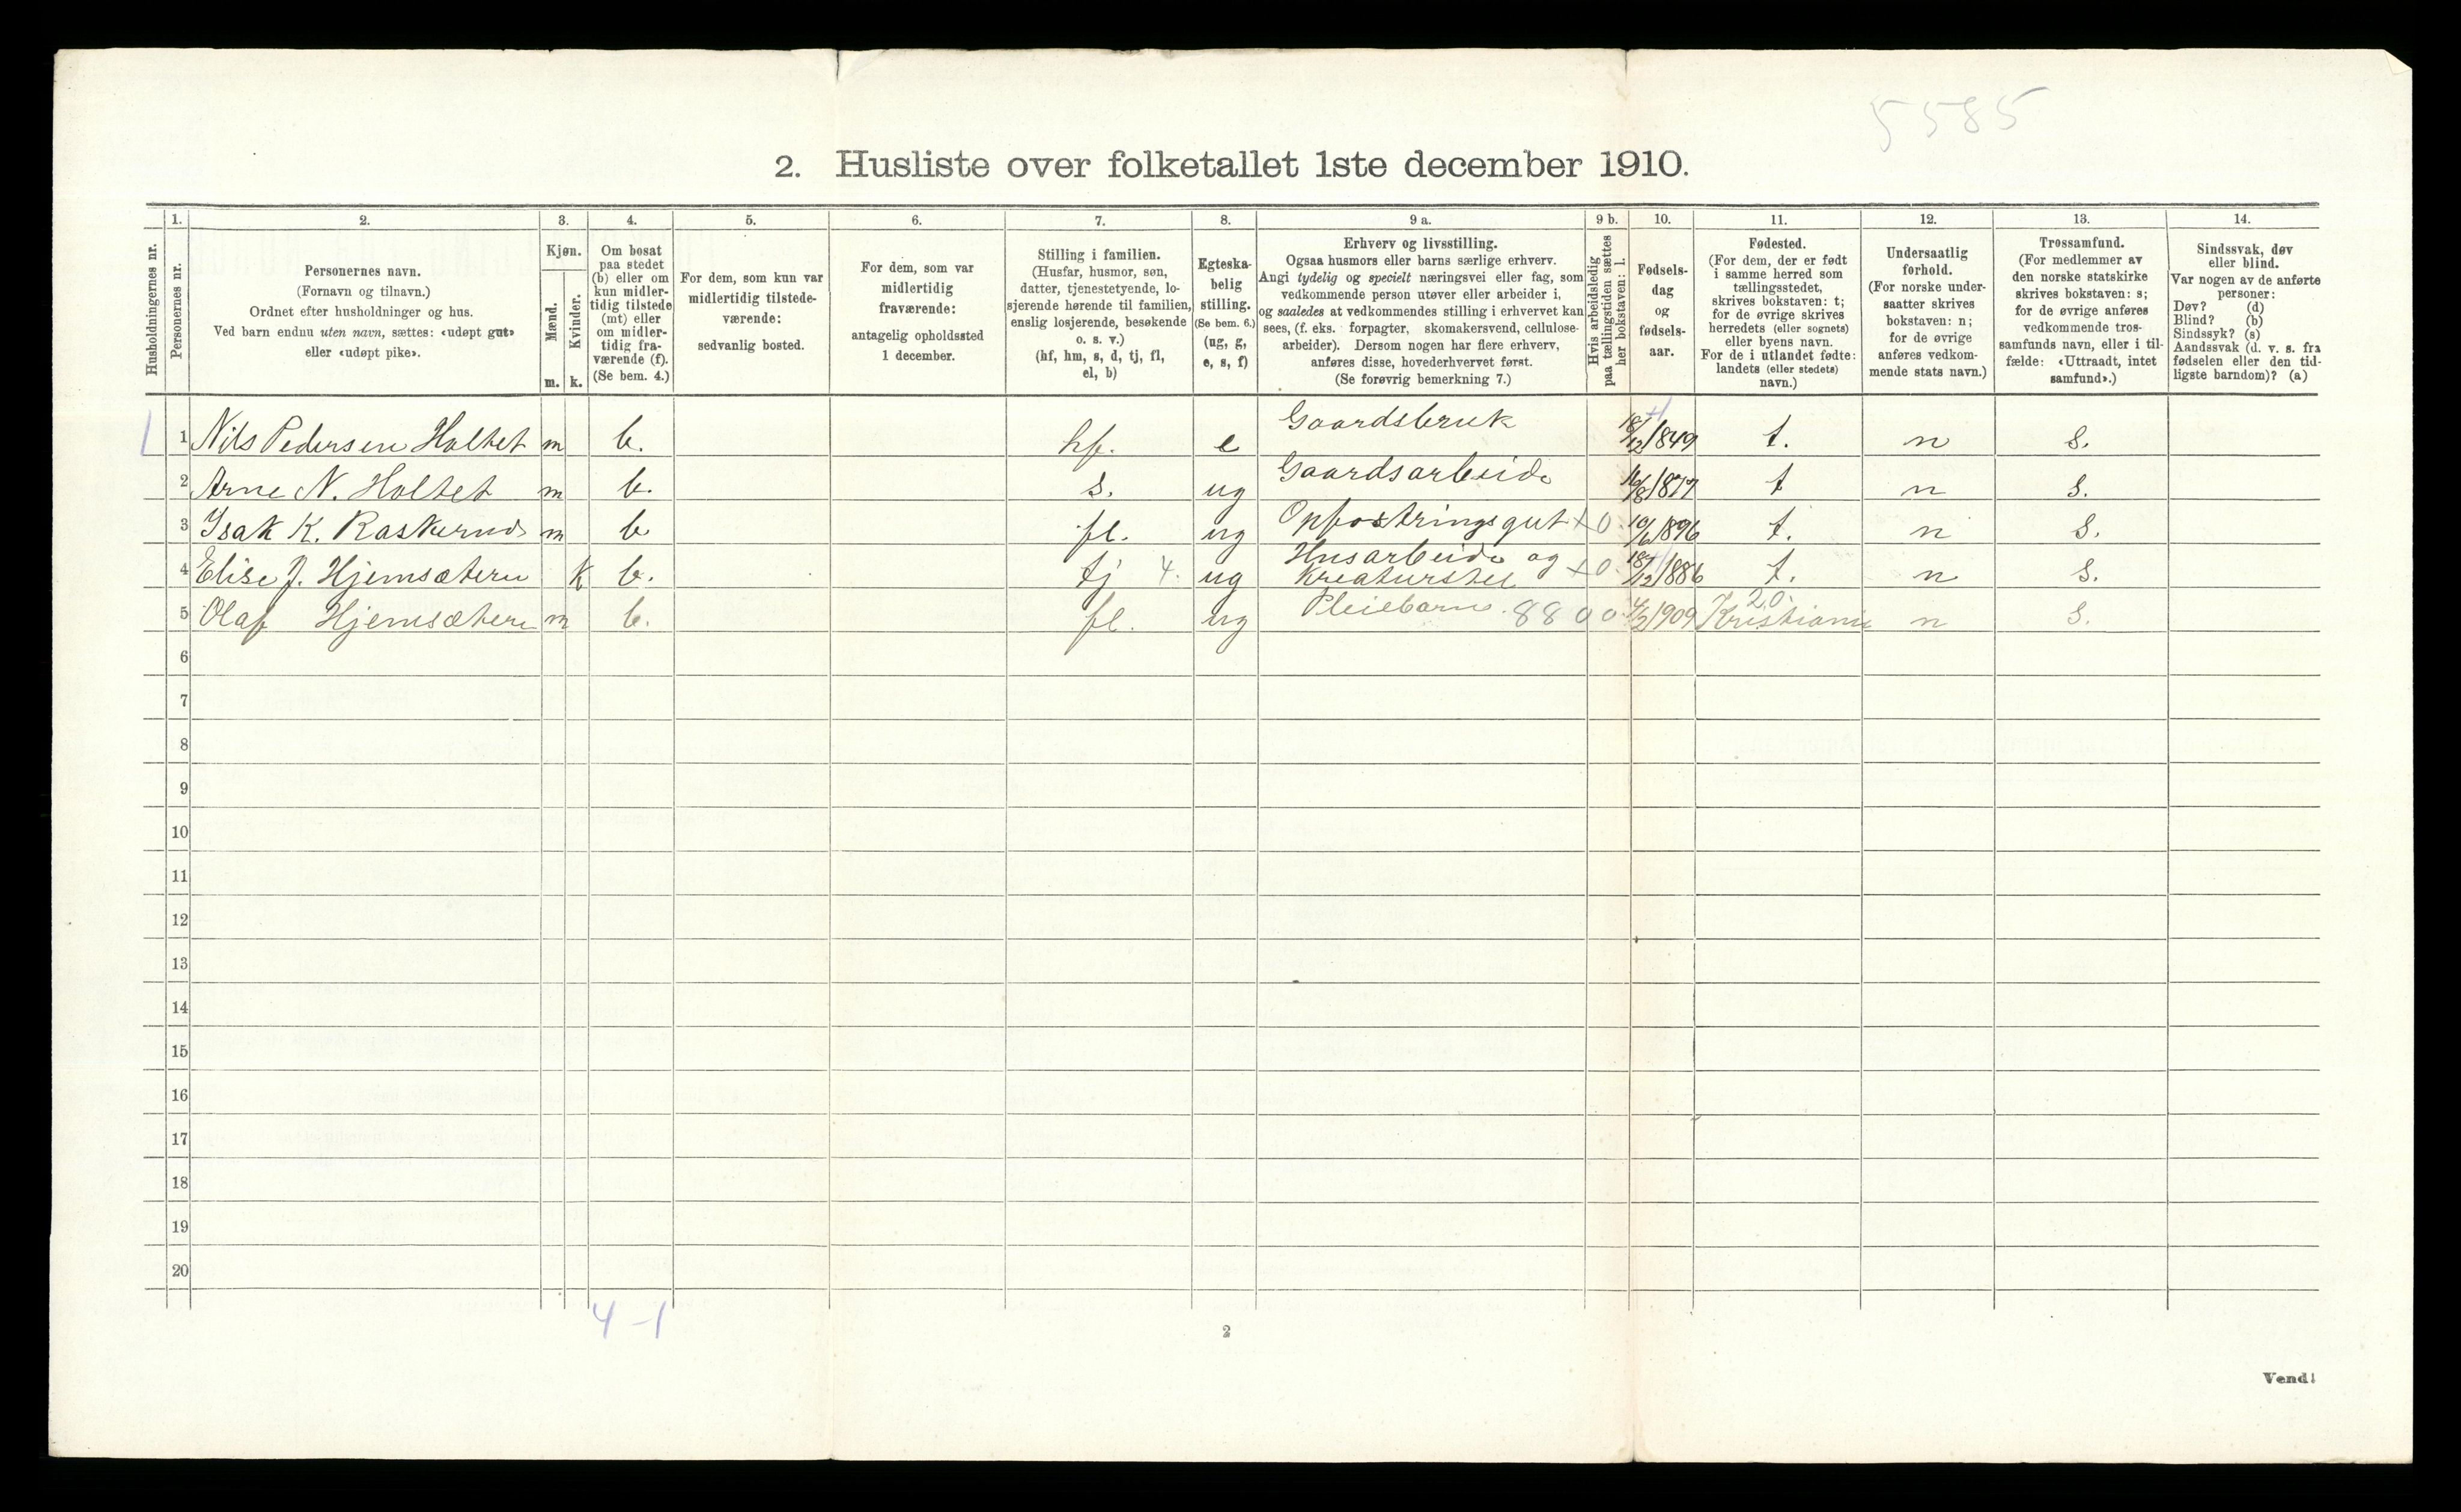 5585
2. Husliste over folketallet 1ste december 1910.
Husholdningernes nr.
1.
Personernes nr.
2.
Personernes navn.
(Fornavn og tilnavn.)
Ordnet efter husholdninger og hus.
Ved barn endnu uten navn, sættes: «udøpt gut»
eller «udøpt pike».
3.
Kjøn.
Mænd.
Kvinder.
m. k.
4.
Om bosat
paa stedet
(b) eller om
kun midler-
tidig tilstede
(mt) eller
om midler-
tidig fra-
værende (f).
(Se bem. 4.)
5.
For dem, som kun var
midlertidig tilstede-
værende:
sedvanlig bosted.
6.
For dem, som var
midlertidig
fraværende:
antagelig opholdssted
1 december.
7.
Stilling i familien.
(Husfar, husmor, søn,
datter, tjenestetyende, lo-
sjerende hørende til familien,
enslig losjerende, besøkende
o. s. v.)
(hf, hm, s, d, tj, fl,
el, b)
8.
Egteska-
belig
stilling.
(Se bem. 6.)
(ug, g,
e, s, f)
9 a.
Erhverv og livsstilling.
Ogsaa husmors eller barns særlige erhverv.
Angi tydelig og specielt næringsvei eller fag, som
vedkommende person utøver eller arbeider i,
og saaledes at vedkommendes stilling i erhvervet kan
sees, (f. eks. forpagter, skomakersvend, cellulose-
arbeider). Dersom nogen har flere erhverv,
anføres disse, hovederhvervet først.
(Se forøvrig bemerkning 7.)
9 b.
Hvis arbeidsledig
paa tællingstiden sættes
her bokstaven: l.
10.
Fødsels-
dag
og
fødsels-
aar.
11.
Fødested.
(For dem, der er født
i samme herred som
tællingsstedet,
skrives bokstaven: t;
for de øvrige skrives
herredets (eller sognets)
eller byens navn.
For de i utlandet fødte:
landets (eller stedets)
navn.)
12.
Undersaatlig
forhold.
(For norske under-
saatter skrives
bokstaven: n;
for de øvrige
anføres vedkom-
mende stats navn.)
13.
Trossamfund.
(For medlemmer av
den norske statskirke
skrives bokstaven: s;
for de øvrige anføres
vedkommende tros-
samfunds navn, eller i til-
fælde: «Uttraadt, intet
samfund».)
14.
Sindssvak, døv
eller blind.
Var nogen av de anførte
personer:
Døv? (d)
Blind? (b)
Sindssyk? (s)
Aandssvak (d. v. s. fra
fødselen eller den tid-
ligste barndom)? (a)
1 1 Nils Pedersen Holtet m b. hf. e Gaardsbruk 18/12 1849 t. n s.
2 Arne N. Holtet m b. s. ug Gaardsarbeide 16/8 1877 t n s.
3 Isak K. Raskerud m b fl. ug Opfostringsgut x0 10/6 1896 t. n s.
4 Elise J. Hjemsæteren k b. tj 4. ug Husarbeide og
Kreaturstel x0. 18/12 1886 t. n s.
5 Olaf Hjemsæteren m b. fl. ug Pleiebarn. 8800 4/2 1909 20.
Kristiania n s.
6
7
8
9
10
11
12
13
14
15
16
17
18
19
20
4-1
2
Vend!